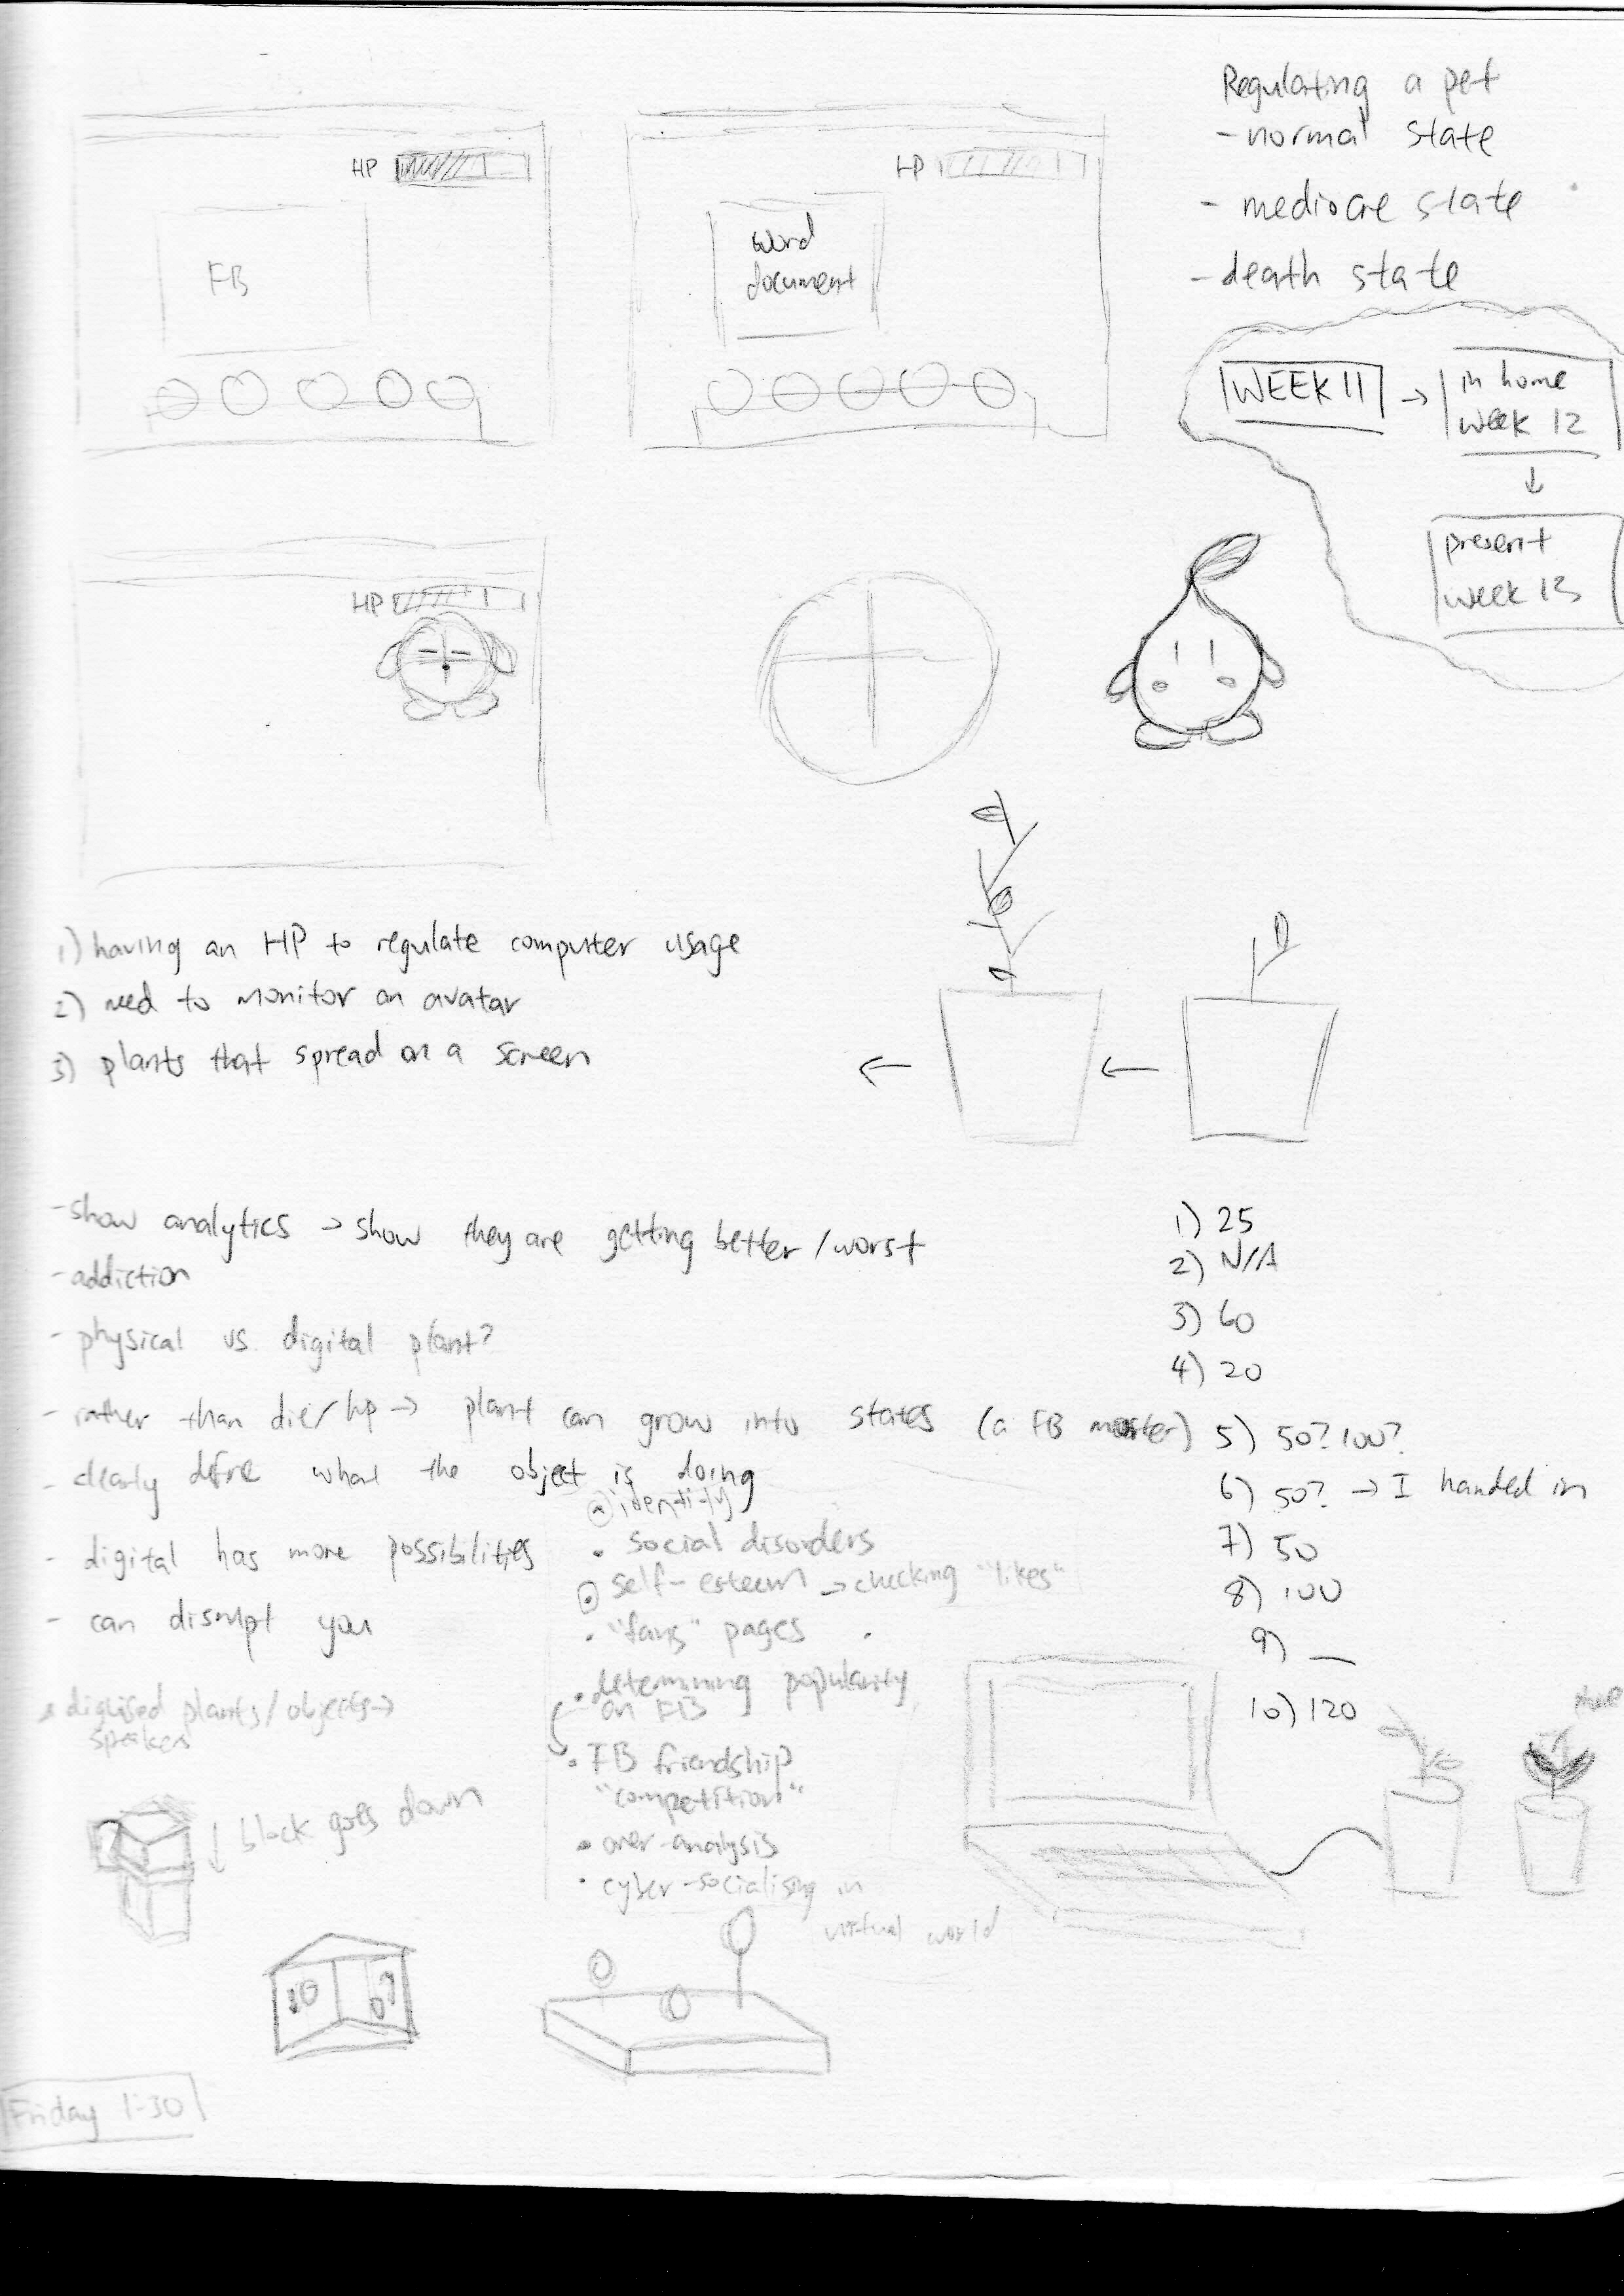 HP
FB
HP
word
document
Regulating a pet
- normal state
- mediocre state
- death state
WEEK 11 →
in home
week 12
↓
present
week 13
HP
1) having an HP to regulate computer usage
2) need to monitor an avatar
3) plants that spread on a screen
← ←
- show analytics → show they are getting better/worst
- addiction
- physical vs. digital plant?
- rather than die/hp → plant can grow into states (a FB monster)
- clearly define what the object is doing
- digital has more possibilities
- can disrupt you
digitised plants/objects →
speakers
↓ block goes down
identity
• social disorders
self-esteem → checking "likes"
• "fans" pages
• determining popularity
on FB
• FB friendship
"competition"
• over-analysis
• cyber-socialising in
virtual world
1) 25
2) N/A
3) 60
4) 20
5) 50? 100?
6) 50? → I handed in
7) 50
8) 100
9) _
10) 120
Friday 1-30